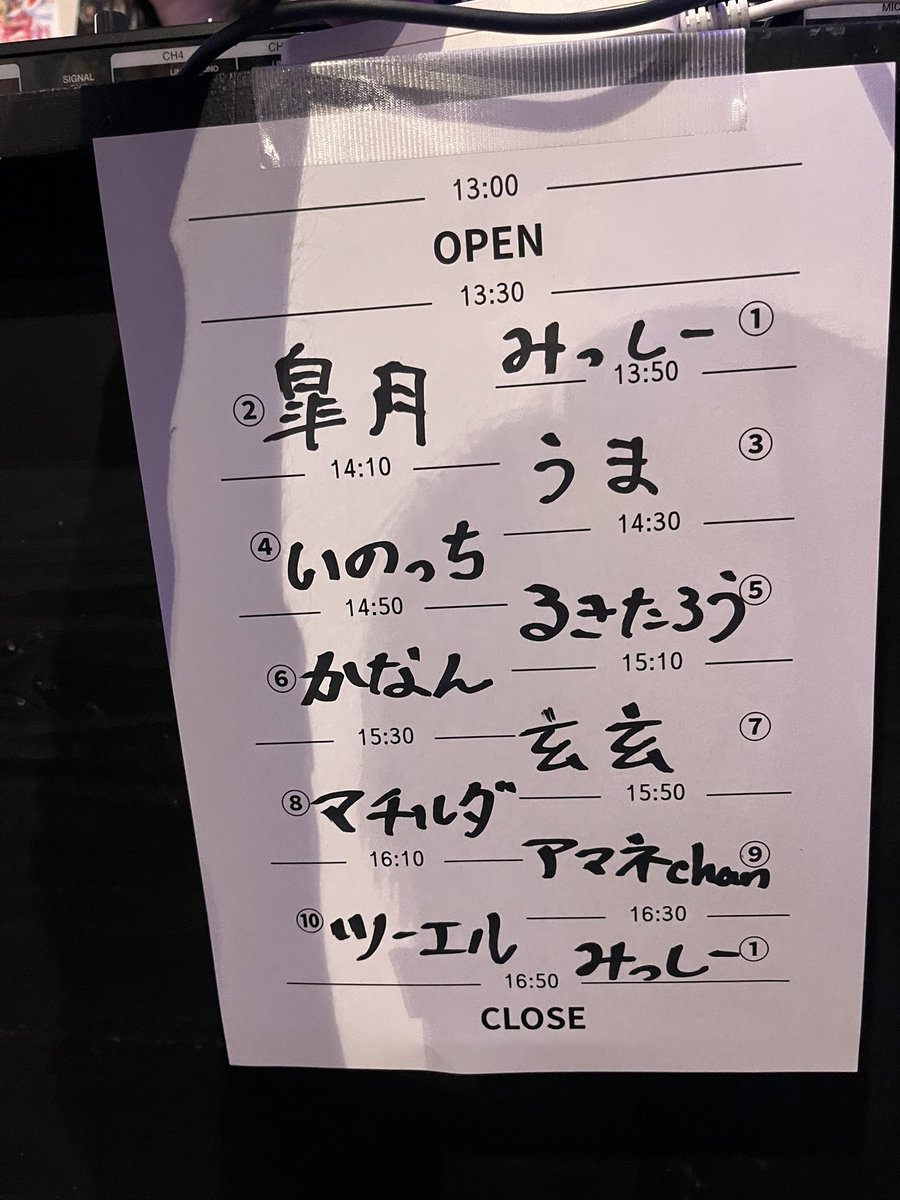 CH4
SIGNAL
MIC
13:00
OPEN
13:30
みっしー ①
13:50
② 皐月
14:10
うま ③
14:30
④ いのっち
14:50
るきたろう ⑤
15:10
⑥ かなん
15:30
玄玄 ⑦
15:50
⑧ マチルダ
16:10
アマネchan ⑨
16:30
⑩ ツーエル
みっしー ①
16:50
CLOSE